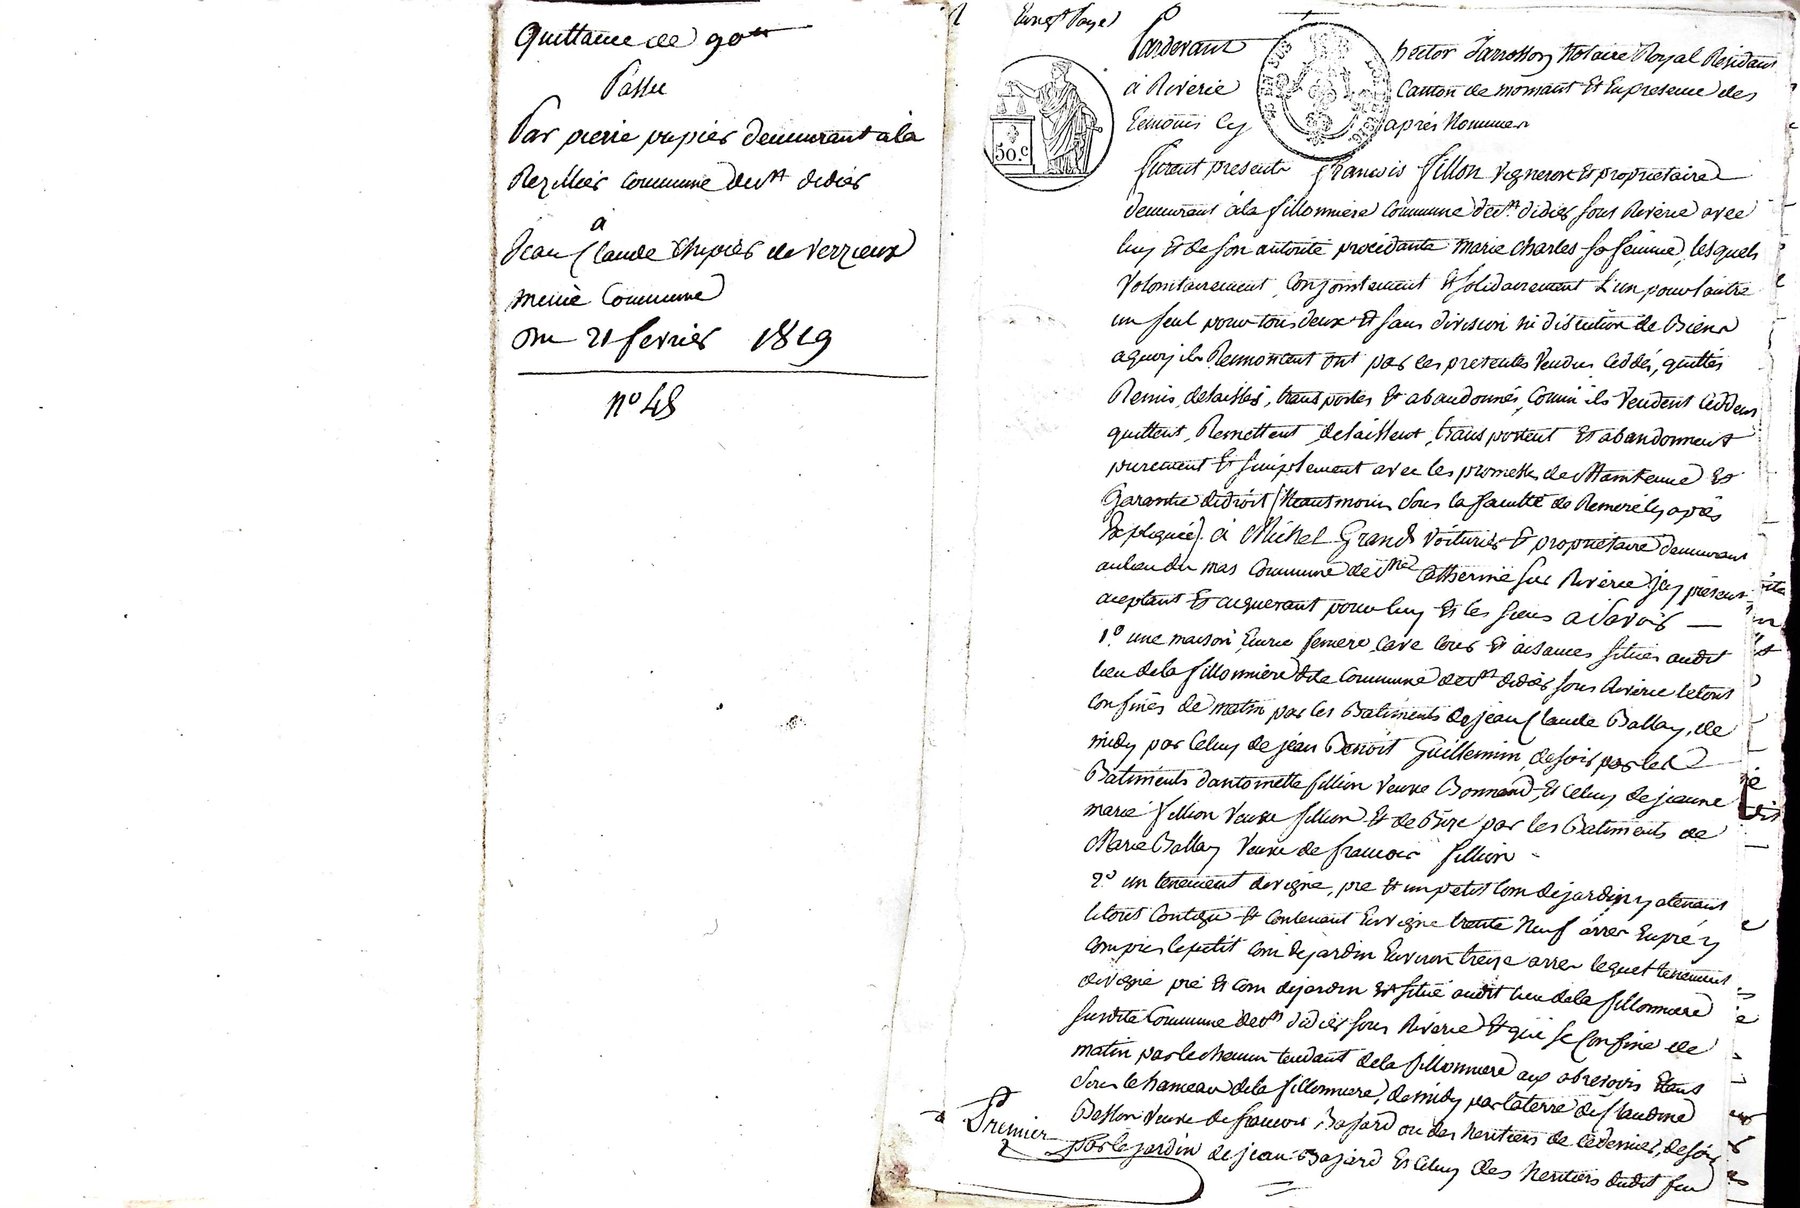 Quittance de 90 tt
Passée
Par pierre pupier demeurant à la
Rezillier commune de St didier
à
Jean Claude Chipier de Verzieux
même Commune
Du 21 fevrier 1819
n° 48
Pardevant hector Jarrosson Notaire Royal Résidant
à Riverie Canton de mornant Et En presence des
Temoins Cy après Nommés
50 c
furent presents francois fillon Vigneron Et propriétaire
demeurant à la fillonniere Commune de St didier sous Riverie avec
luy Et de son autorité procédante marie charles sa femme, lesquels
Volontairement, Conjointement Et solidairement L'un pour l'autre
un seul pour tous deux Et sans division ni discution de Biens
a quoy ils Renoncent ont par ces presentes Vendus Ceddés, quittés
Remis, delaissés, transportés Et abandonnés, Comm'ils Vendent Ceddent
quittent, Remettent, delaissent, transportent Et abandonnent
purement Et simplement avec les promesses de Maintenue Et
Garantie de droit (Neantmoins sous la faculté de Remeré Cy après
Expliquée) à Michel Grand Voiturier Et propriétaire demeurant
au lieu du mas Commune de Ste Catherine sur Riverie icy présent
aceptant Et aquerant pour luy Et les siens a Savoir —
1° une maison Ecurie feniere Cave Cour Et aisances situés audit
lieu de la fillonniere dite Commune de St didier sous Riverie le tout
Confinés de matin par les Batiments de jean Claude Ballay, de
midy par Celuy de jean Benoit Guillermin, de soir par les
Batiments d'antoinette fillion Veuve Bonnand, Et Celuy de jeanne
marie fillion Veuve fillion Et de Bize par les Batiments de
Marie Ballay Veuve de francois fillion
2° un tenement de vigne, pré Et un petit Coin de jardin y atenant
le tout Contigu Et Contenant En Vigne trente Neuf arres En pré y
Compris le petit Coin de jardin Environ treize arres lequel tenement
de vigne pré Et Coin de jardin Est situé audit lieu de la fillonniere
susdite Commune de St didier sous Riverie Et qui se Confine de
matin par le chemin tendant de la fillonniere aux abrevoirs Etant
sous le hameau de la fillonniere, de midy par la terre de Claudine
Besson Veuve de francois Bajard ou des heritiers de Ce dernier, de soir
par le jardin de jean Bajard Et Celuy des heritiers dudit feu
Premier